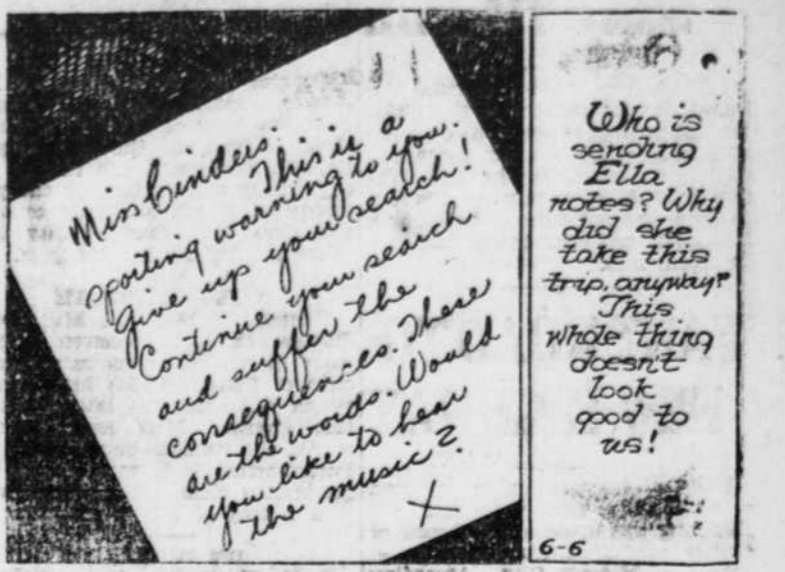 Miss Cinders:
This is a
sporting warning to you.
Give up your search!
Continue your search
and suffer the
consequences. These
are the words. Would
you like to hear
the music?
X
Who is
sending
Ella
notes? Why
did she
take this
trip, anyway?
This
whole thing
doesn't
look
good to
us!
6-6